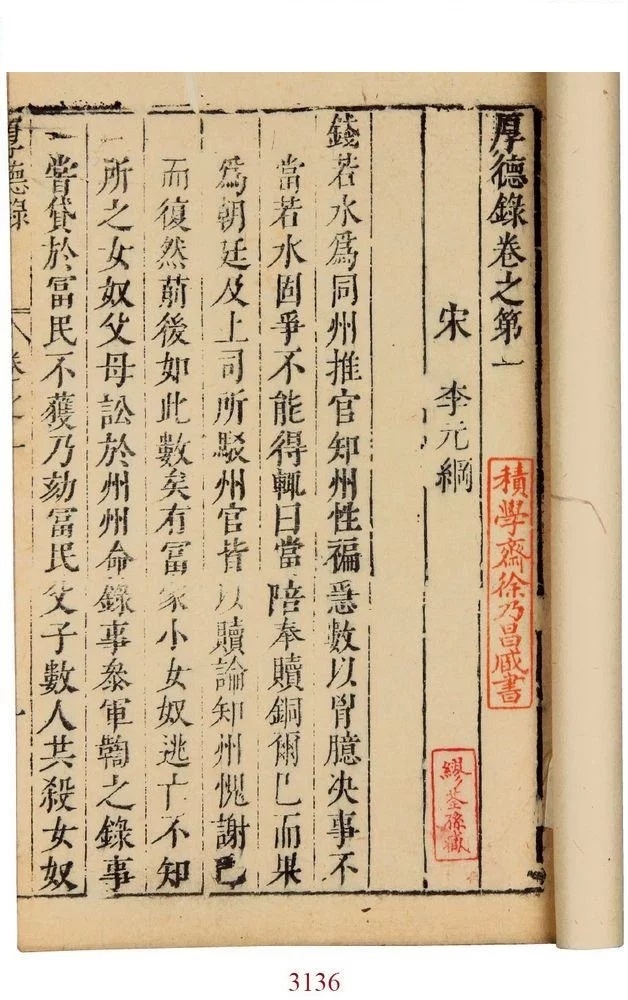 厚德錄卷之第一
積學齋徐乃昌臧書
宋 李元綱
繆荃孫藏
錢若水爲同州推官知州性褊急數以胷臆决事不
當若水固爭不能得輒曰當陪奉贖銅爾已而果
爲朝廷及上司所駁州官皆以贖論知州愧謝已
而復然前後如此數矣有富家小女奴逃亡不知
所之女奴父母訟於州州命錄事叅軍鞫之錄事
嘗貸於富民不獲乃劾富民父子數人共殺女奴
厚德錄
卷之一
一
3136